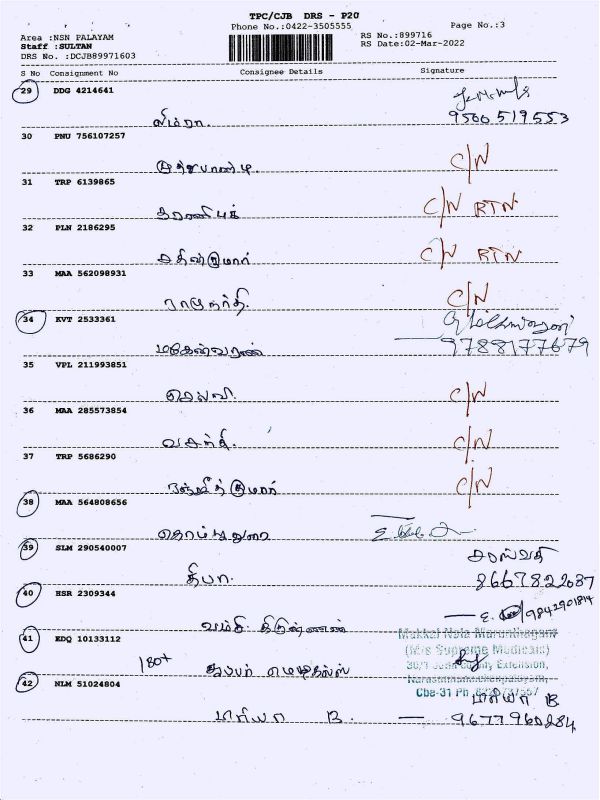 TPC/CJB DRS - P20
Phone No.:0422-3505555
Page No.:3
Area :NSN PALAYAM
Staff :SULTAN
DRS No. :DCJB89971603
RS No.:899716
RS Date:02-Mar-2022
S No Consignment No Consignee Details Signature
29 DDG 4214641
லிம்ரா. 9500519553
30 PNU 756107257
முத்துபாண்டி C/N
31 TRP 6139865
C/N RTN
32 PLN 2186295
C/N RTN
33 MAA 562098931
ராமமூர்த்தி. C/N
34 KVT 2533361
மகேஸ்வரன் 9788177679
35 VPL 211993851
செல்வி. C/N
36 MAA 285573854
வசந்தி. C/N
37 TRP 5686290
ரஞ்ஜித் குமார் C/N
38 MAA 564808656
39 SLM 290540007
சரஸ்வதி
தீபா. 8667822037
40 HSR 2309344
E. 9842901814
41 EDQ 10133112
Makkal Nala Marunthagam
(M/s Supreme Medicals)
180+ சுப்பர் மெடிகல்ஸ்
Extension,
42 NLM 51024804
Cbe-31 Ph
மரியா B
மரியா B. — 9677960284